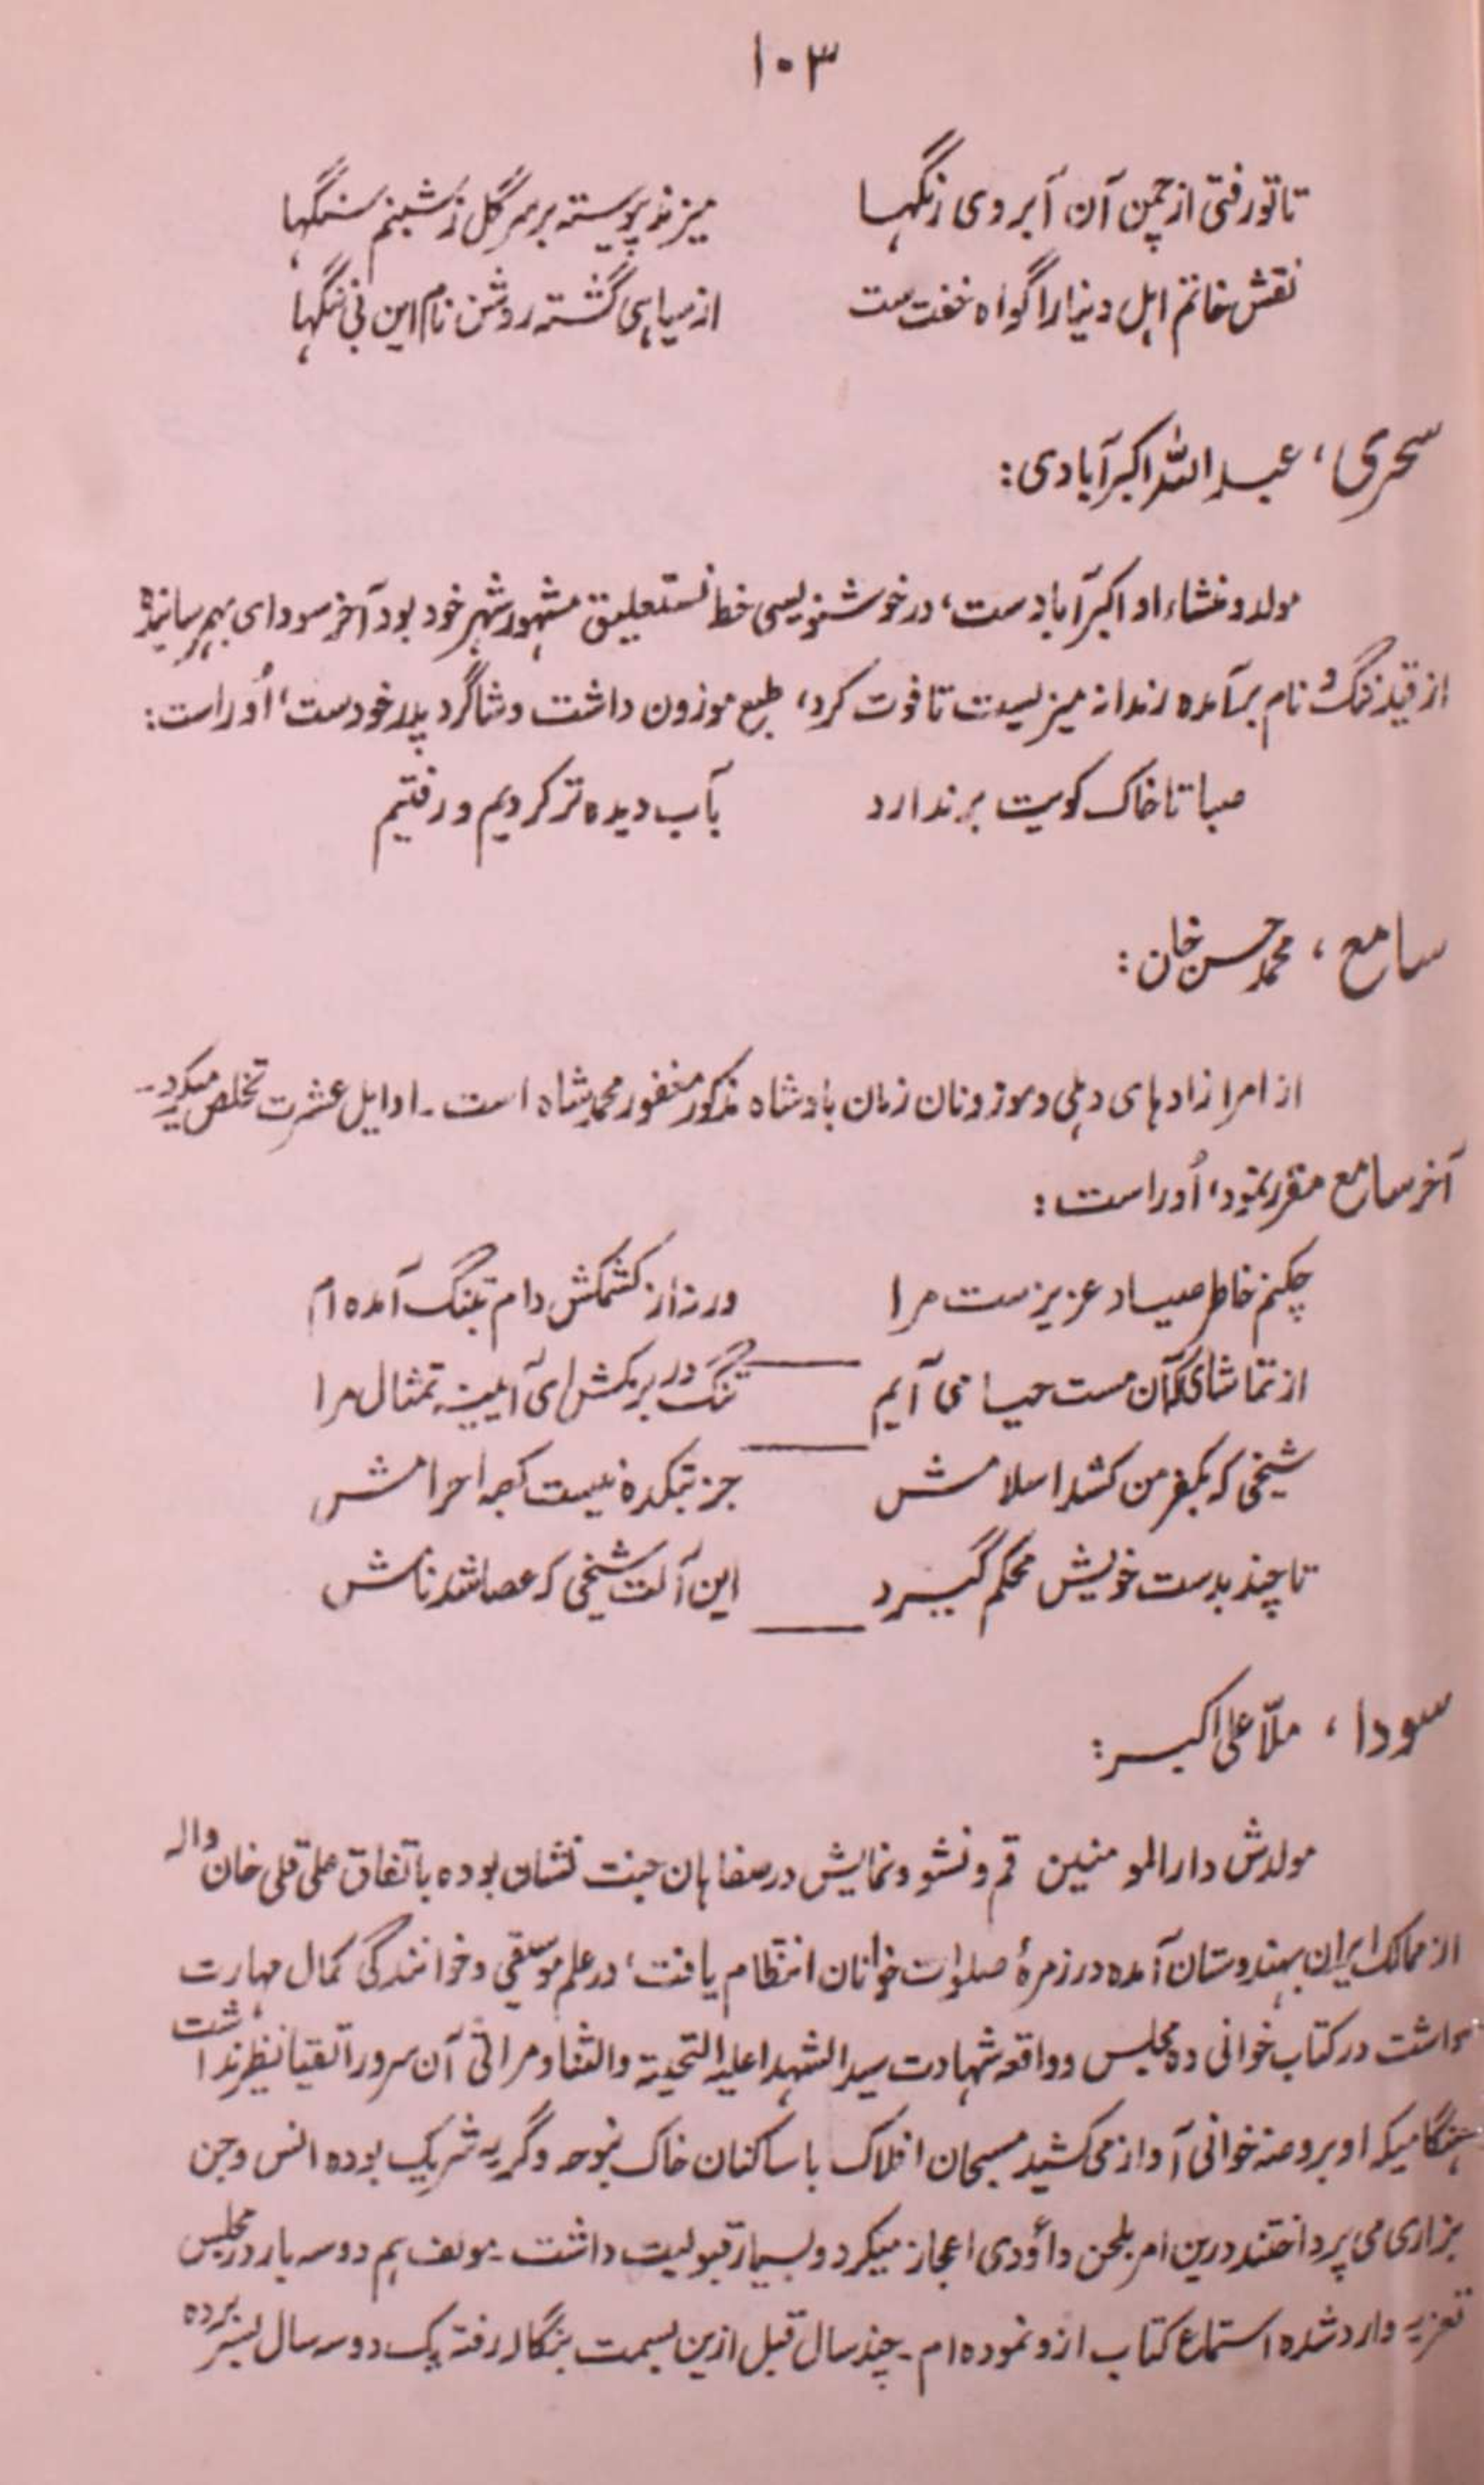 ۱۰۳
تا تو رفتی از چمن آن آبروی رنگها میزند پیوسته بر سر گل ز شبنم سنگها
نقش خاتم اہل دنیا را گواه خفت ست از سیاہی گشته روشن نام این بی ننگها
سحری، عبد اللہ اکبرآبادی:
مولد و منشاء او اکبرآباد ست، در خوشنویسی خط نستعلیق مشہور شہر خود بود آخر سودای بہم رسانیده
از قید ننگ و نام برآمده رندانه میزیست تا فوت کرد، طبع موزون داشت و شاگرد پدر خودست، اُوراست:
صبا تا خاک کویت برندارد بآب دیده تر کردیم و رفتیم
سامع، محمد حسن خان:
از امرا زادہای دہلی و موزونان زمان بادشاه مذکور مغفور محمد شاه است۔ اوایل عشرت تخلص میکرد۔
آخر سامع مقرر نمود، اُوراست:
چکنم خاطر صیاد عزیزست مرا ورنہ از کشمکش دام بتنگ آمده ام
از تماشای آن مست حیا می آیم تنگ در بر بکش ای آیینہ تمثال مرا
شیخی که بکفر من کشد اسلامش جز بتکده نیست کعبہ احرامش
تا چند بدست خویش محکم گیرد این آلت شیخی که عصا شد نامش
سودا، ملّا علی اکبر:
مولدش دار المومنین قم و نشو و نمایش در صفاہان جنت نشان بوده باتفاق علی قلی خان والہ
از ممالک ایران بہندوستان آمده در زمرهٔ صلوات خوانان انتظام یافت، در علم موسیقی و خوانندگی کمال مہارت
داشت در کتاب خوانی ده مجلس و واقعہ شہادت سید الشہدا علیہ التحیتہ والثنا و مراثی آن سرور اتقیا نظیر نداشت
ہنگامیکہ او بروضہ خوانی آواز می کشید مسبحان افلاک با ساکنان خاک بنوحہ و گریہ شریک بوده انس و جن
بزاری می پرداختند درین امر بلحن داؤدی اعجاز میکرد و بسیار قبولیت داشت۔ مولف ہم دو سہ بار در مجلس
تعزیہ وارد شده استماع کتاب ازو نموده ام۔ چند سال قبل ازین بسمت بنگالہ رفتہ یک دو سہ سال بسر برده